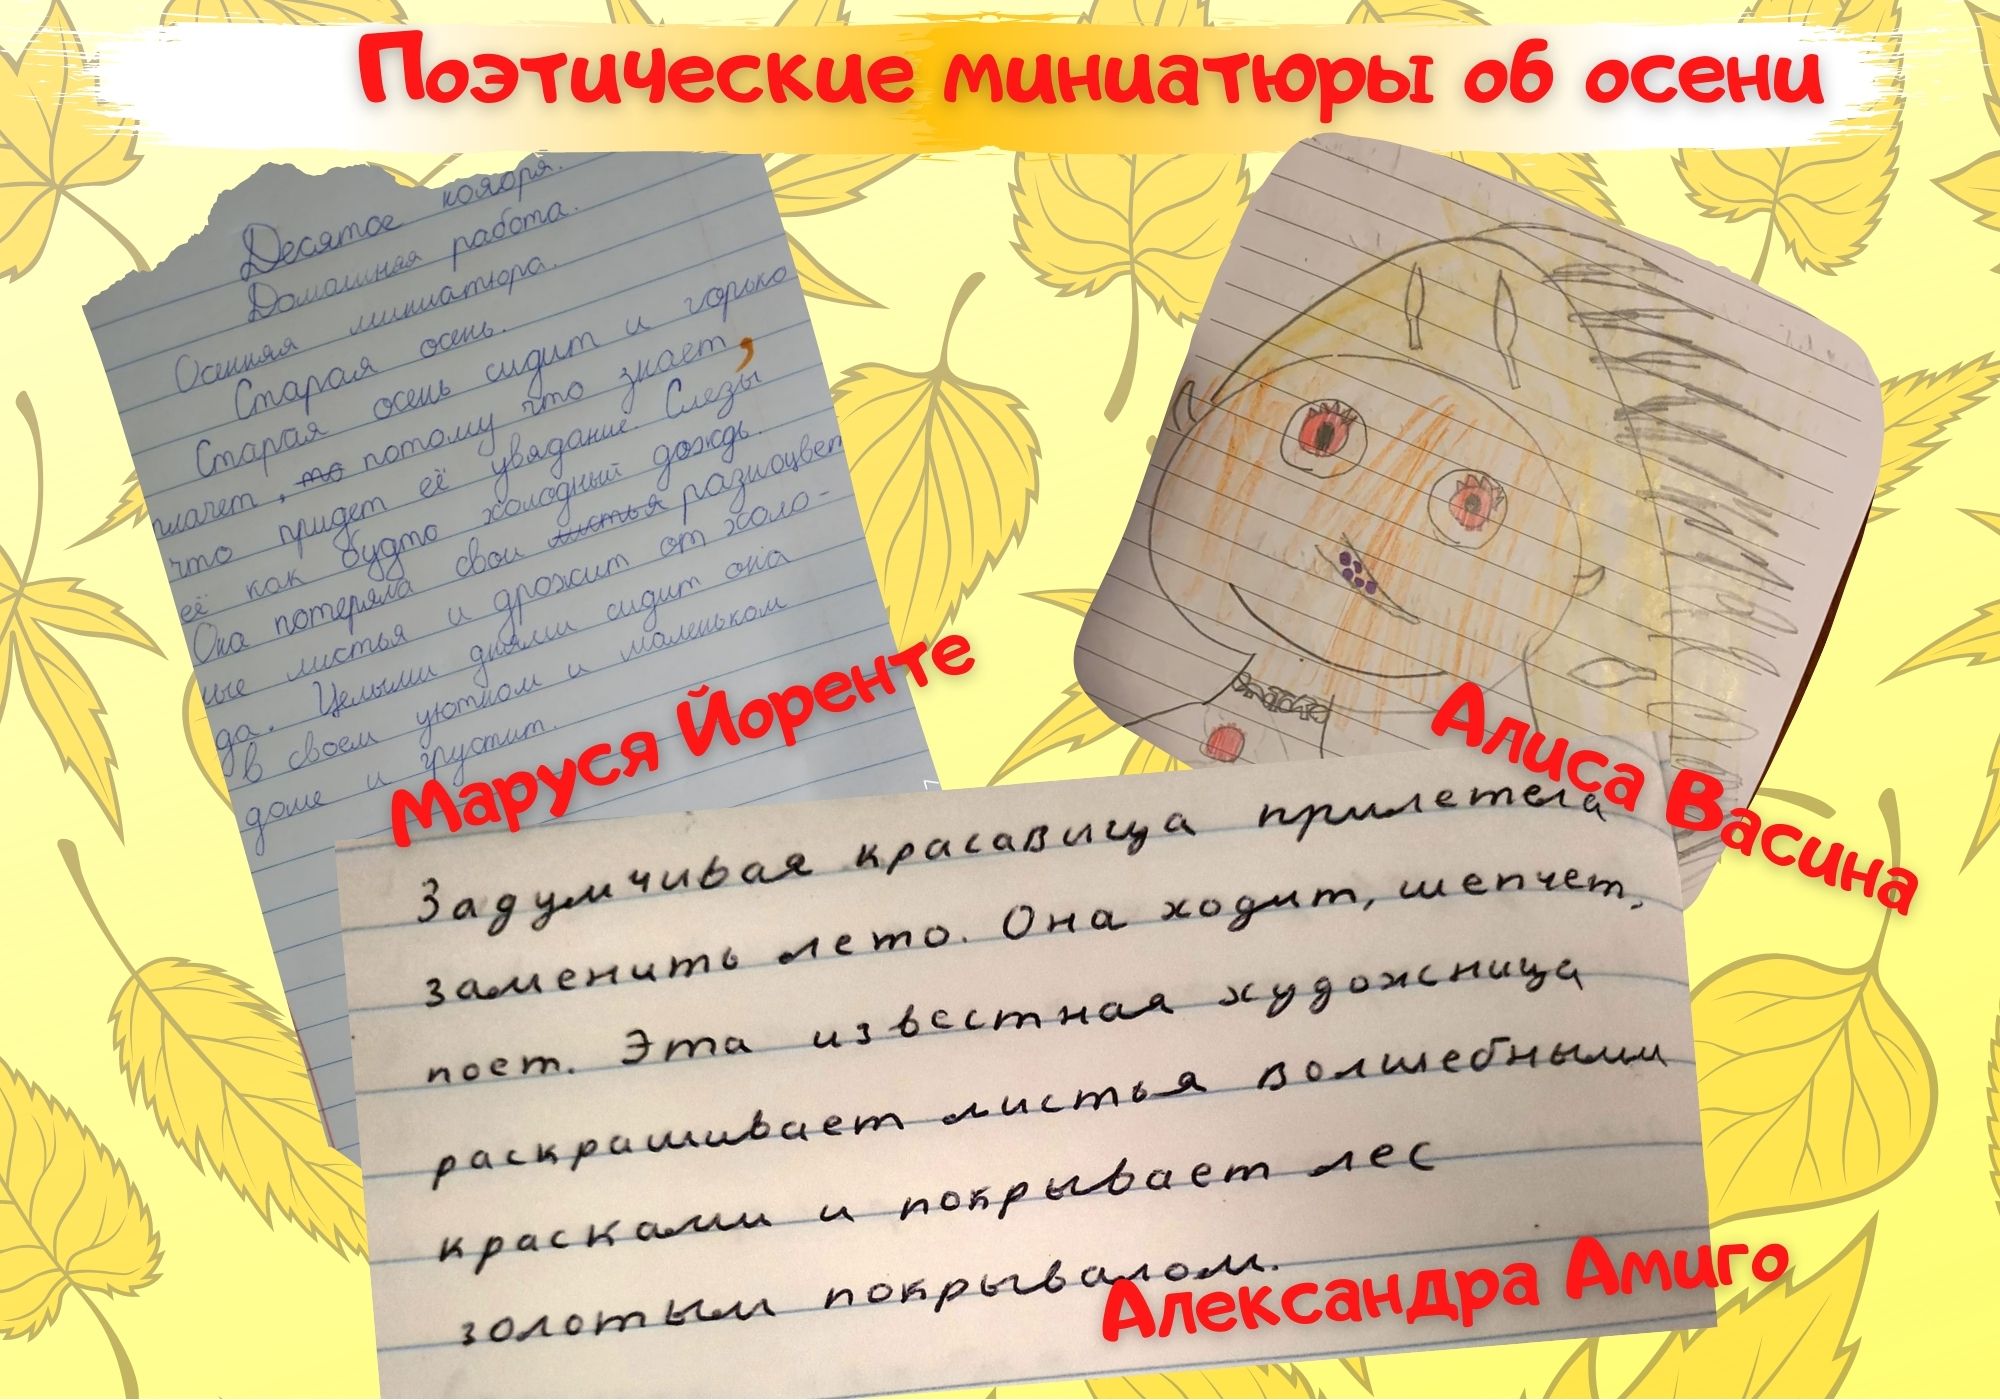 Поэтические миниатюры об осени
Десятое ноября.
Домашняя работа.
Осенняя миниатюра.
Старая осень.
Старая осень сидит и горько
плачет, то потому что знает,
что придет её увядание. Слезы
её как будто холодный дождь.
Она потеряла свои листья разноцвет
ные листья и дрожит от холо-
да. Целыми днями сидит она
в своем уютном и маленьком
доме и грустит.
Маруся Йоренте
Алиса Васина
Задумчивая красавица прилетела
заменить лето. Она ходит, шепчет,
поет. Эта известная художница
раскрашивает листья волшебными
красками и покрывает лес
золотым покрывалом.
Александра Амиго